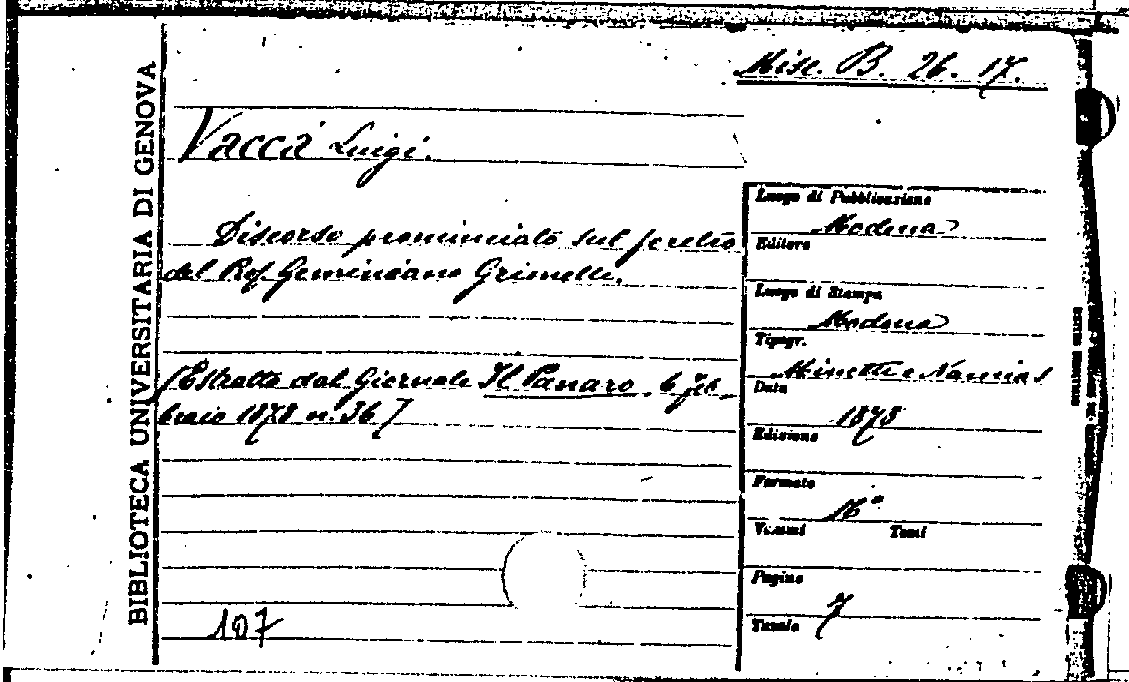 Misc. B. 26. 17.
BIBLIOTECA UNIVERSITARIA DI GENOVA
Vaccà Luigi.
Discorso pronunciato sul feretro
del Prof. Geminiano Grimelli.
[Estratto dal Giornale Il Panaro. 6 feb-
braio 1878 n. 36]
107
Luogo di Pubblicazione
Modena
Editore
Luogo di Stampa
Modena
Tipogr.
Data
1878
Edizione
Formato
16°
Volumi Tomi
Pagine
7
Tavole